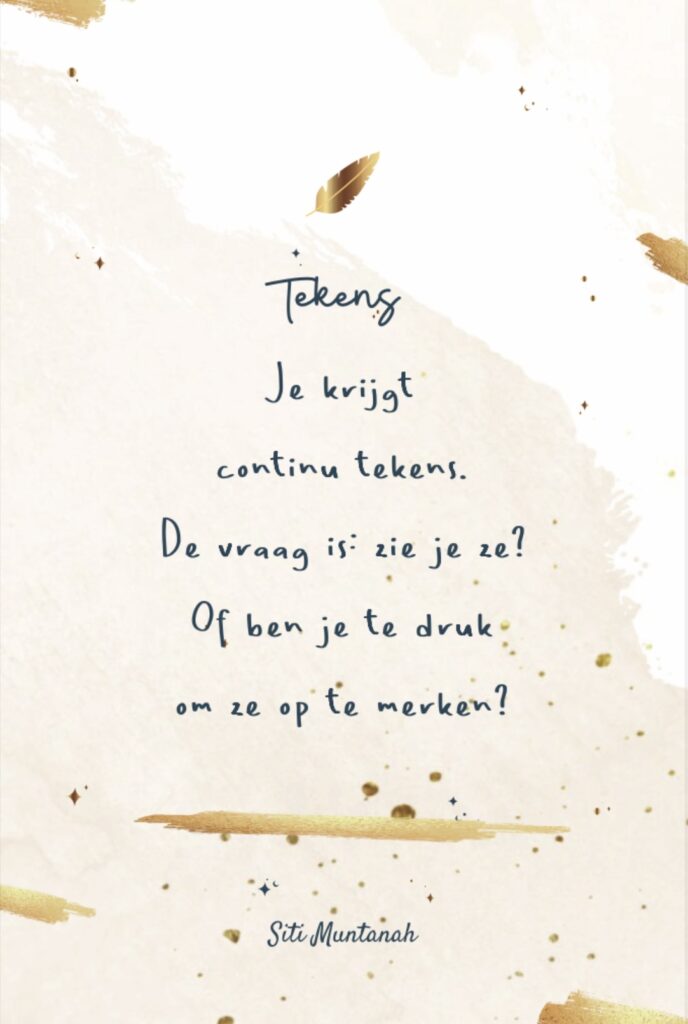 Tekens
Je krijgt
continu tekens.
De vraag is: zie je ze?
Of ben je te druk
om ze op te merken?
Siti Muntanah